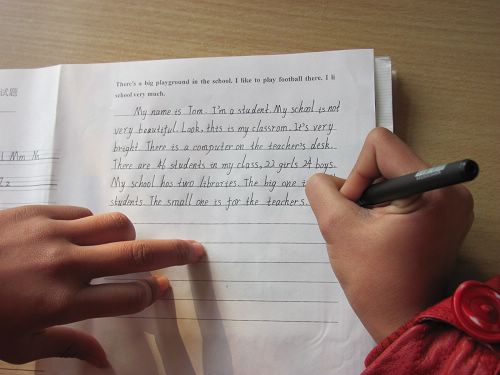 There's a big playground in the school. I like to play football there. I li
school very much.
My name is Tom. I'm a student. My school is not
very beautiful. Look, this is my classrom. It's very
bright. There is a computer on the teacher's desk.
There are 46 students in my class, 22 girls 24 boys.
My school has two libraries. The big one
students. The small one is for the teachers.
试题
Mm Nn
Zz